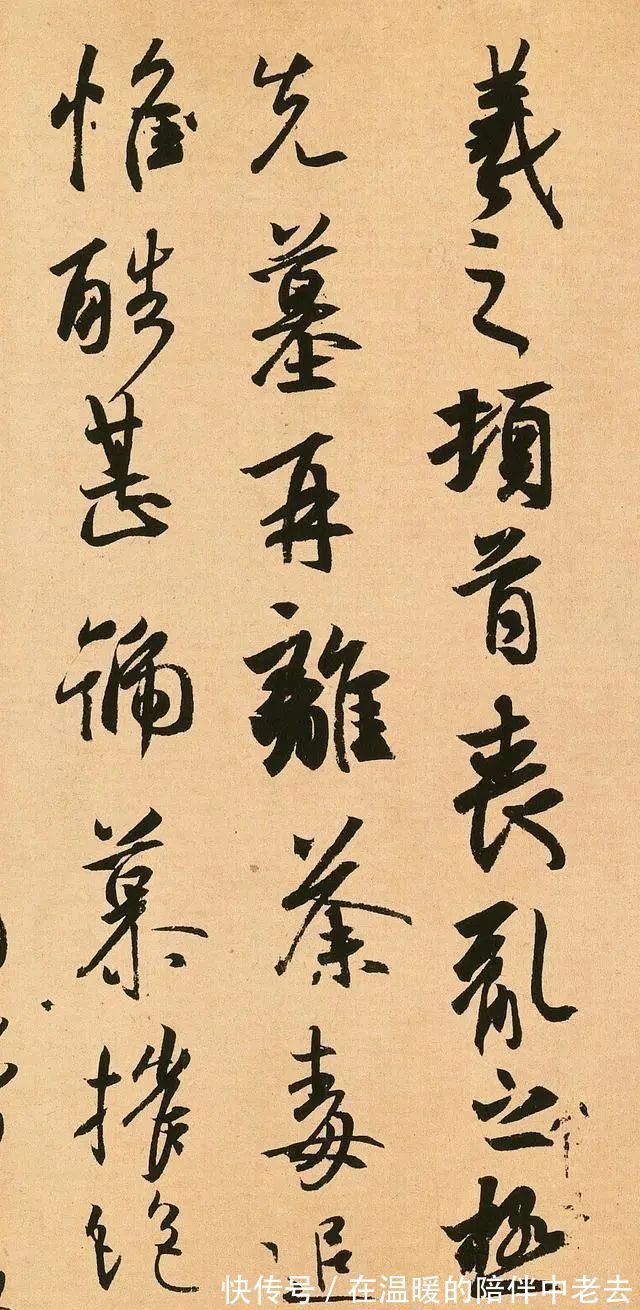 羲之頓首喪亂之極
先墓再離荼毒追
惟酷甚號慕摧絕
快传号/在温暖的陪伴中老去